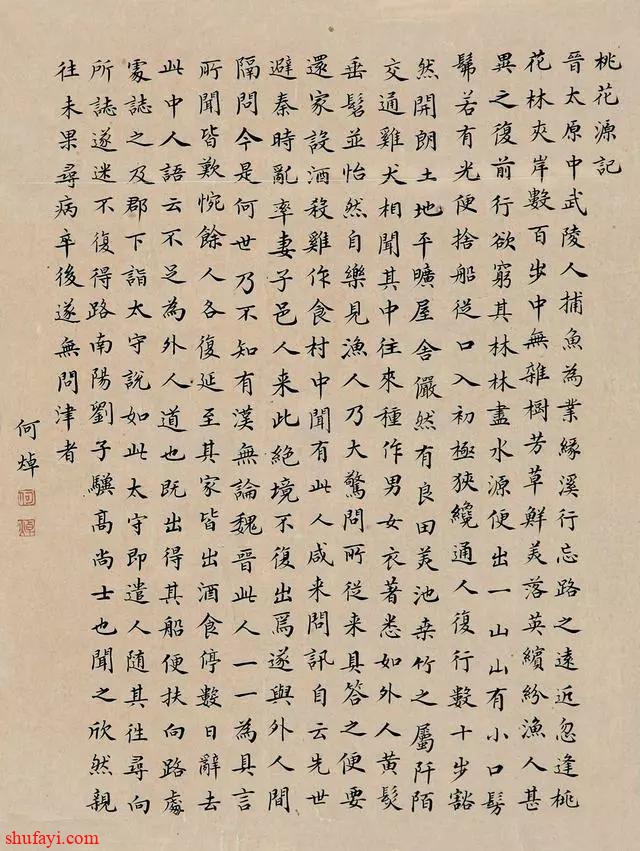 桃花源記
晉太原中武陵人捕魚為業緣溪行忘路之遠近忽逢桃
花林夾岸數百步中無雜樹芳草鮮美落英繽紛漁人甚
異之復前行欲窮其林林盡水源便出一山山有小口髣
髴若有光便捨船從口入初極狹纔通人復行數十步豁
然開朗土地平曠屋舍儼然有良田美池桑竹之屬阡陌
交通雞犬相聞其中往來種作男女衣著悉如外人黃髮
垂髫並怡然自樂見漁人乃大驚問所從来具答之便要
還家設酒殺雞作食村中聞有此人咸来問訊自云先世
避秦時亂率妻子邑人来此絕境不復出焉遂與外人間
隔問今是何世乃不知有漢無論魏晉此人一一為具言
所聞皆歎惋餘人各復延至其家皆出酒食停數日辭去
此中人語云不足為外人道也既出得其船便扶向路處
處誌之及郡下詣太守說如此太守即遣人隨其往尋向
所誌遂迷不復得路南陽劉子驥高尚士也聞之欣然親
往未果尋病卒後遂無問津者
何焯
shufayi.com